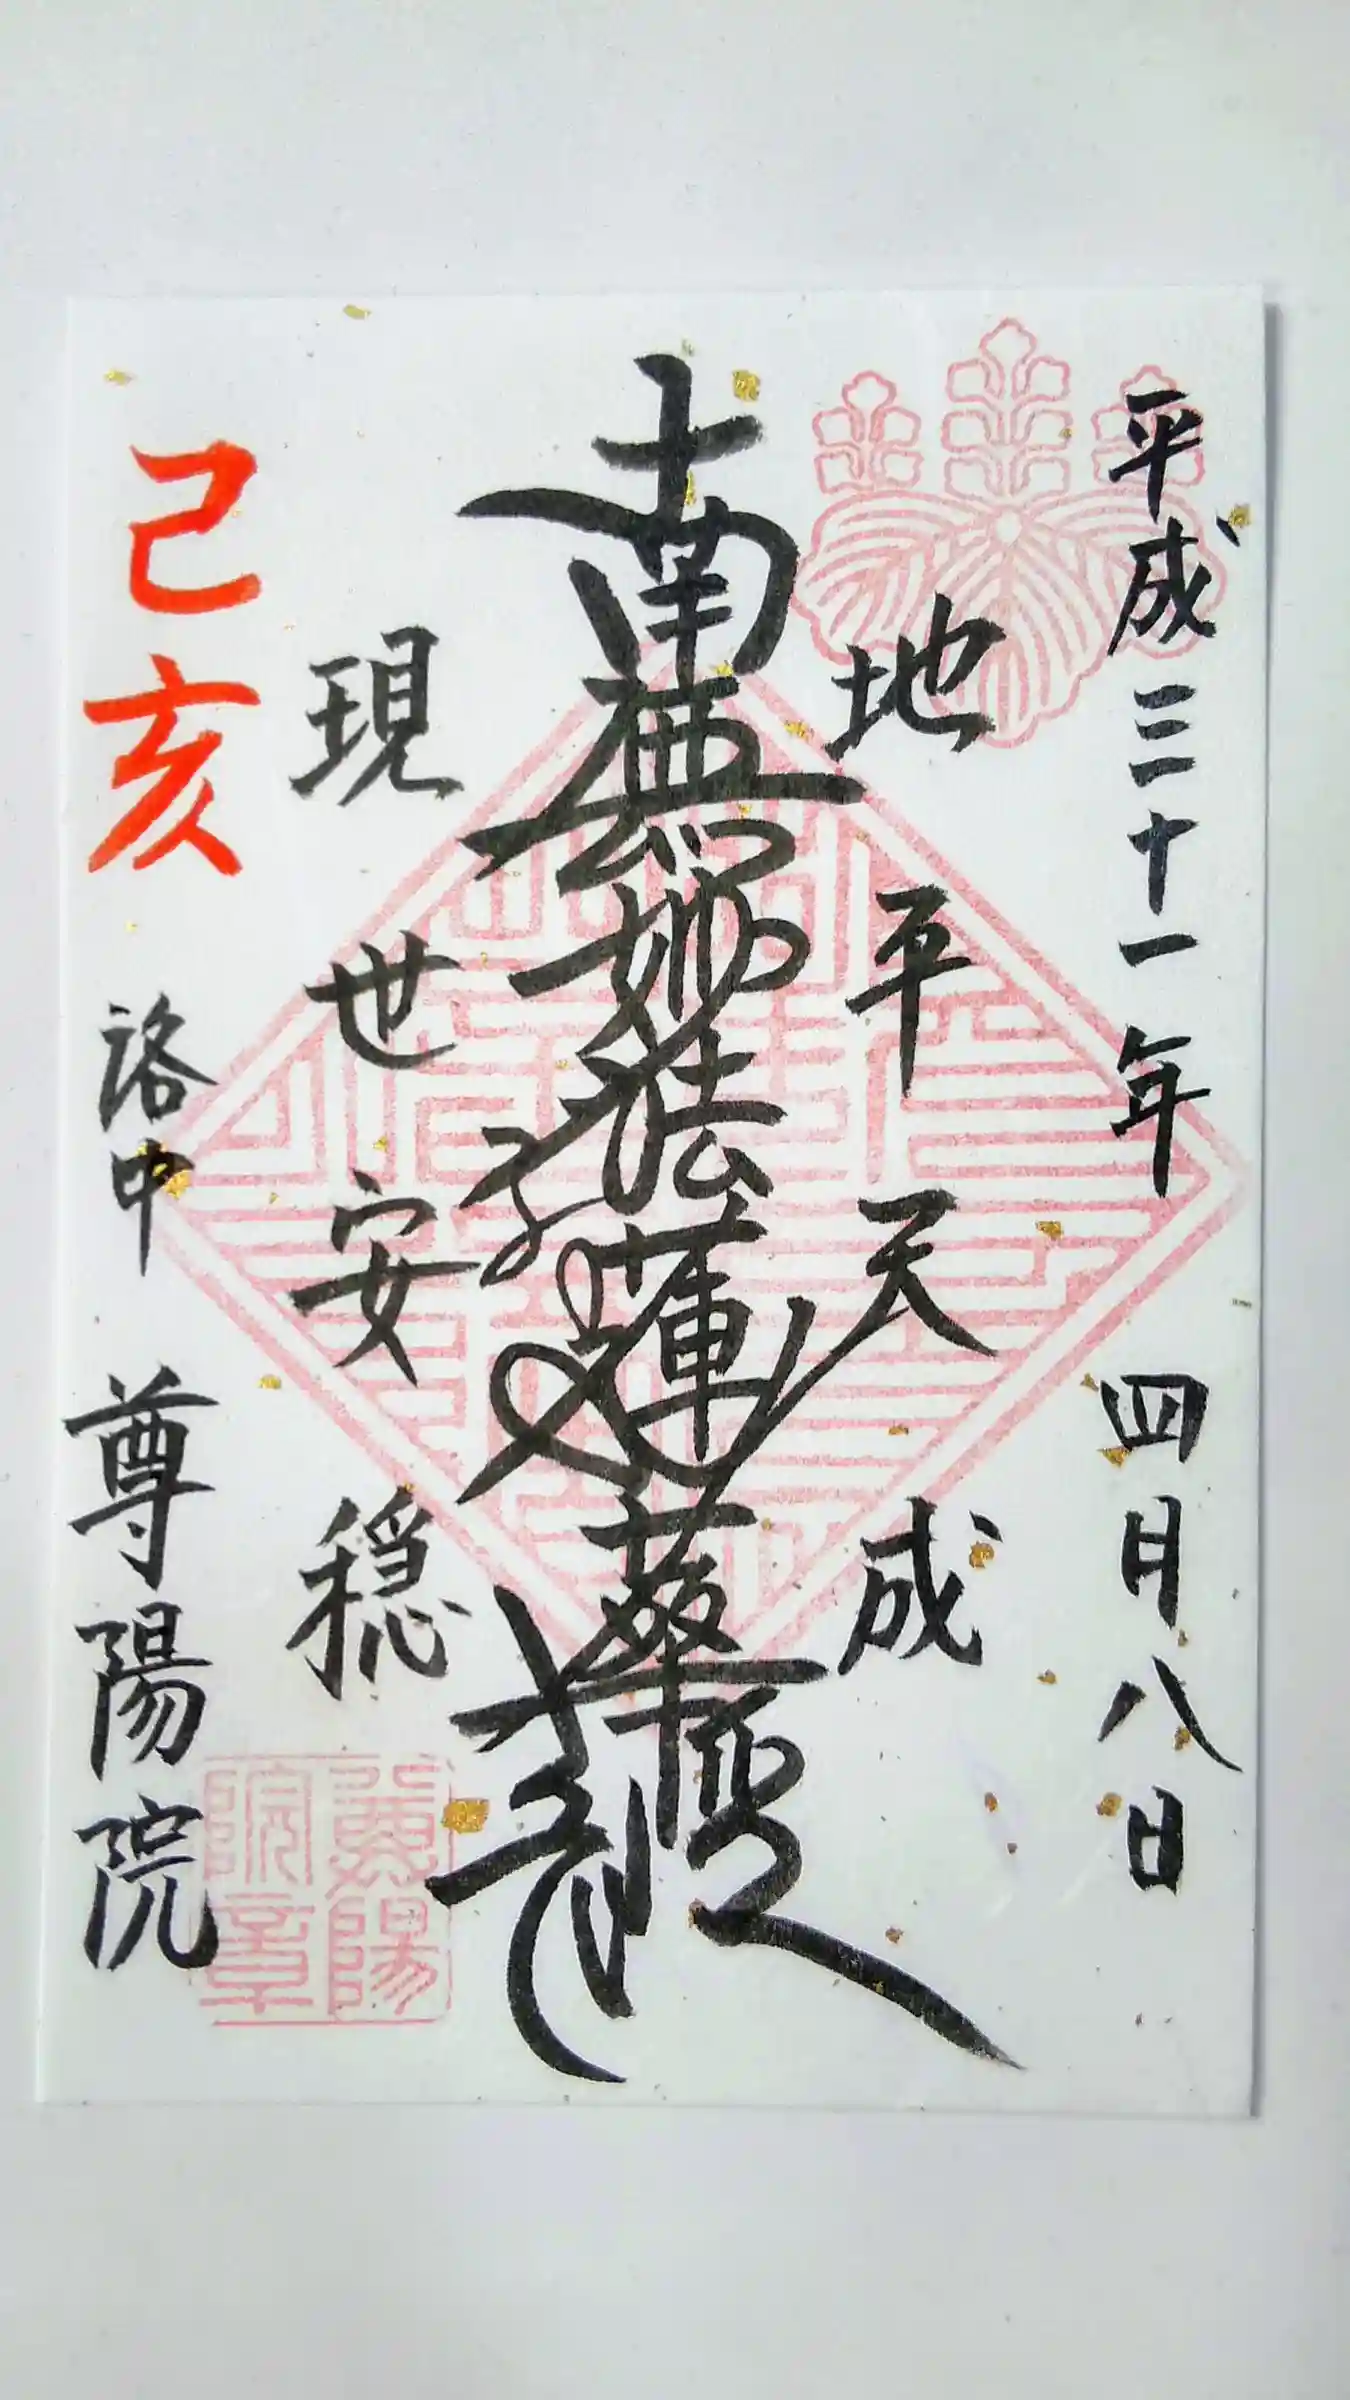 平成三十一年 四月八日
地平天成
南無妙法蓮華経
現世安穏
己亥
洛中 尊陽院
尊陽院章